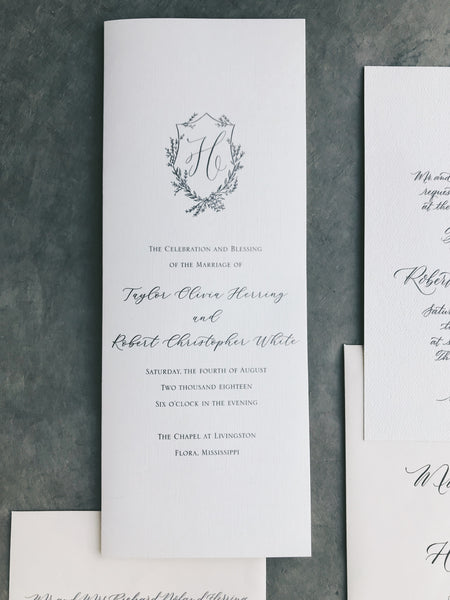 H
The Celebration and Blessing
of the Marriage of
Taylor Olivia Herring
and
Robert Christopher White
Saturday, the fourth of August
Two thousand eighteen
Six o'clock in the evening
The Chapel at Livingston
Flora, Mississippi
Mr and Mrs Richard Noland Herring
Mr and
reques
at the
Robert
Saturd
at s
The
M
H